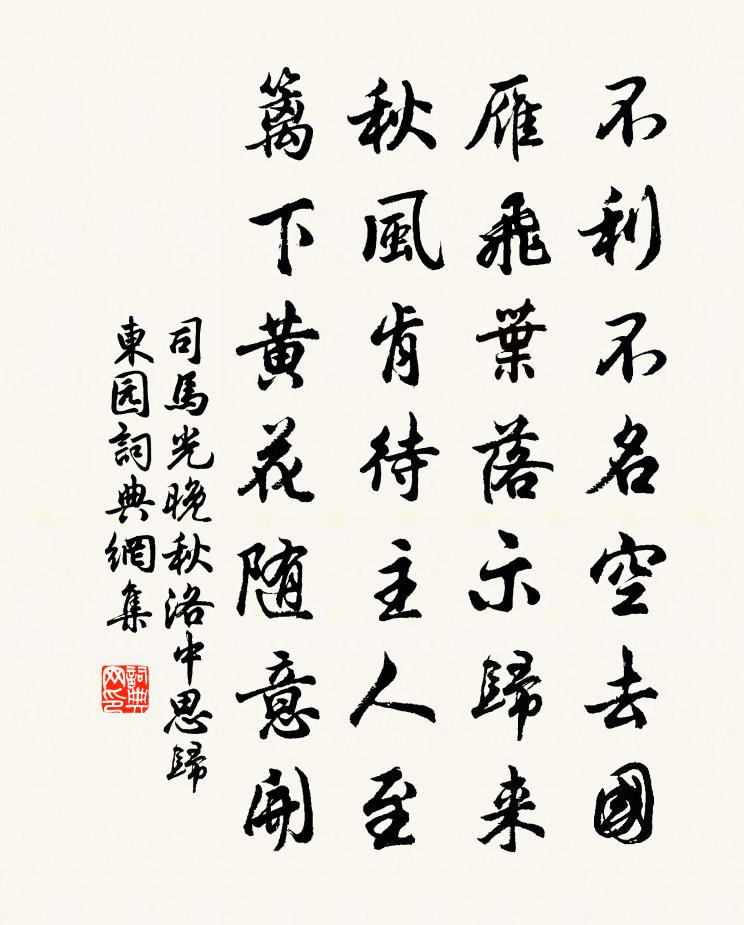 不利不名空去國
雁飛葉落示歸来
秋風肯待主人至
籬下黄花随意開
司馬光晚秋洛中思歸
東园詞典網集
詞典网印